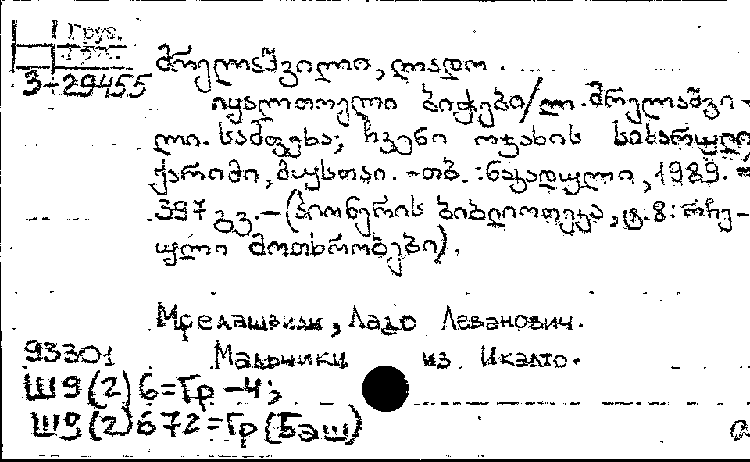 Груз.
3-29455
მრელაშვილი, ლადო.
იყალთოელი ბიჭები/ლ. მრელაშვი-
ლი. სამფეხა; ჩვენი ოჯახის სიხარული
ქარიმი, მუსტაი. -თბ.: ნაკადული, 1989. =
397 გვ. - (პიონერის ბიბლიოთეკა, ტ. 8: რჩე-
ული მოთხრობები).
Мрелашвили, Ладо Леванович.
93301 Мальчики из Икалто.
Ш9(2)6=Гр-4;
Ш9(2)672=Гр(Баш)